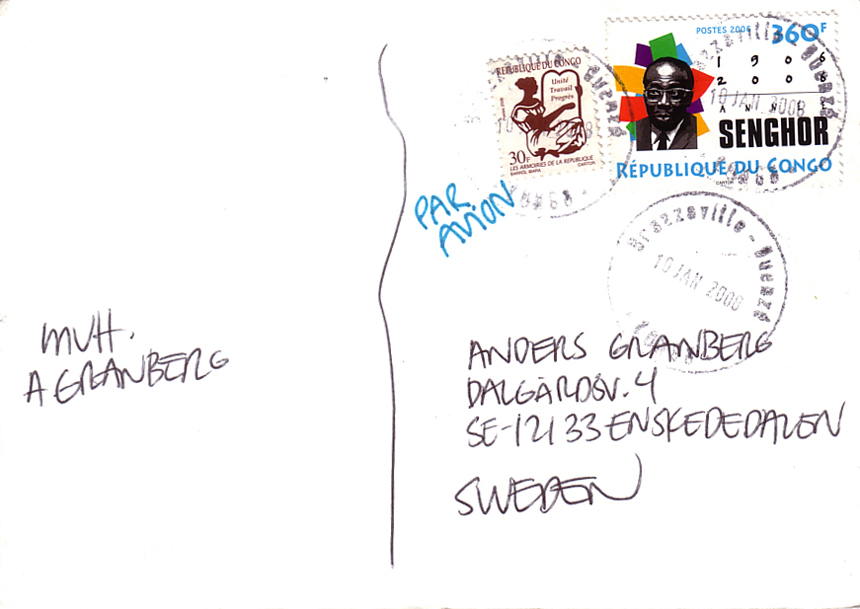 POSTES 2006 360F
1906
2006
SENGHOR
RÉPUBLIQUE DU CONGO
RÉPUBLIQUE DU CONGO
Unité
Travail
Progrès
30F
LES ARMOIRIES DE LA REPUBLIQUE
CARTOR
Brazzaville - Ouenzé
10 JAN 2008
PAR
AVION
Brazzaville - Ouenzé
10 JAN 2008
MVH.
A GRANBERG
ANDERS GRANBERG
DALGÅRDSV. 4
SE-121 33 ENSKEDEDALEN
SWEDEN